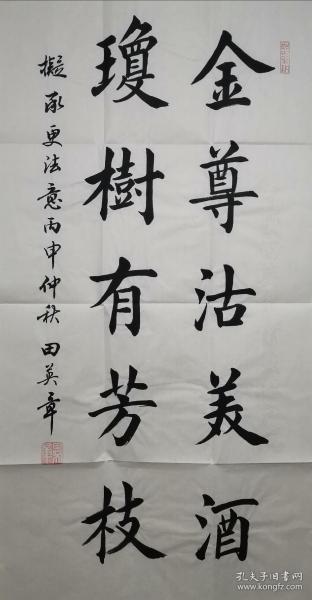 金尊沽美酒
瓊樹有芳枝
擬承更法意丙申仲秋田英章
孔夫子旧书网
www.kongfz.com